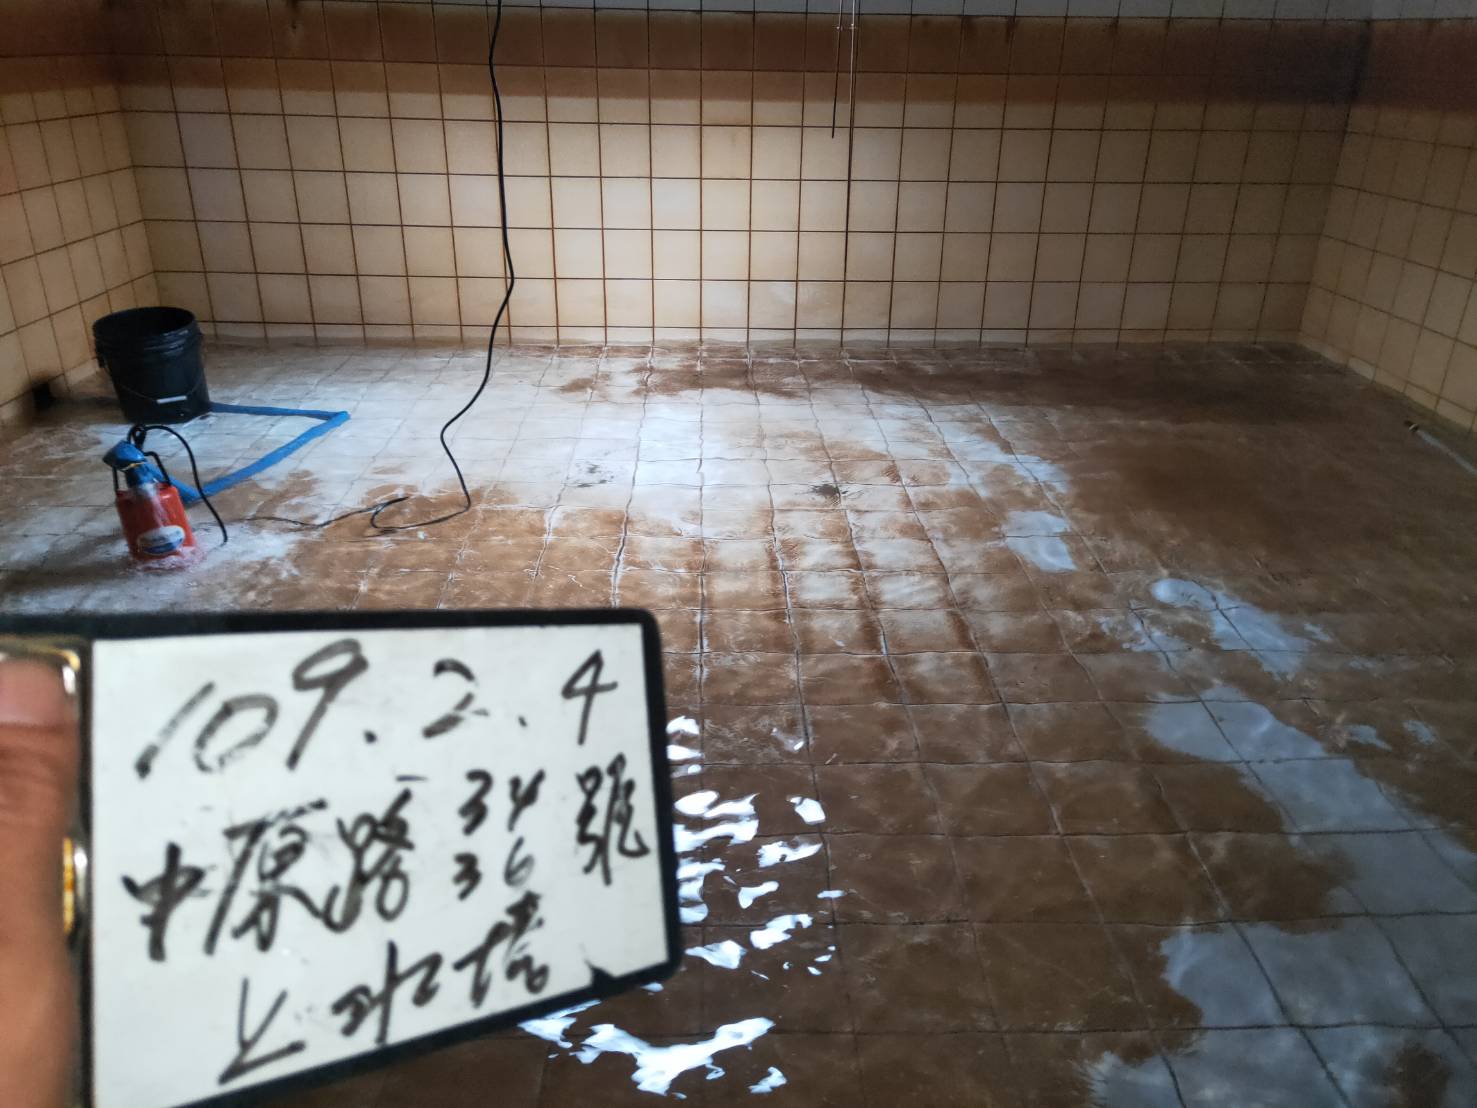 109.2.4
中原路 34 號
36
上水塔